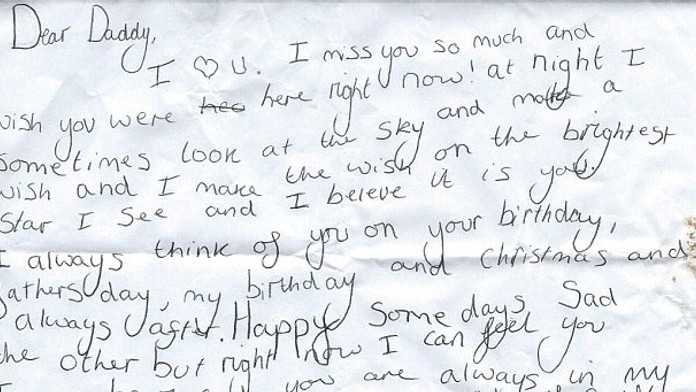 Dear Daddy,
I ♡ U. I miss you so much and
wish you were here right now! at night I
sometimes look at the sky and a
wish and I make the wish on the brightest
star I see and I beleve it is you.
I always think of you on your birthday,
and Christmas and
athers day, my birthday
always after. Happy some days Sad
the other but right now I can feel you
you are always in my